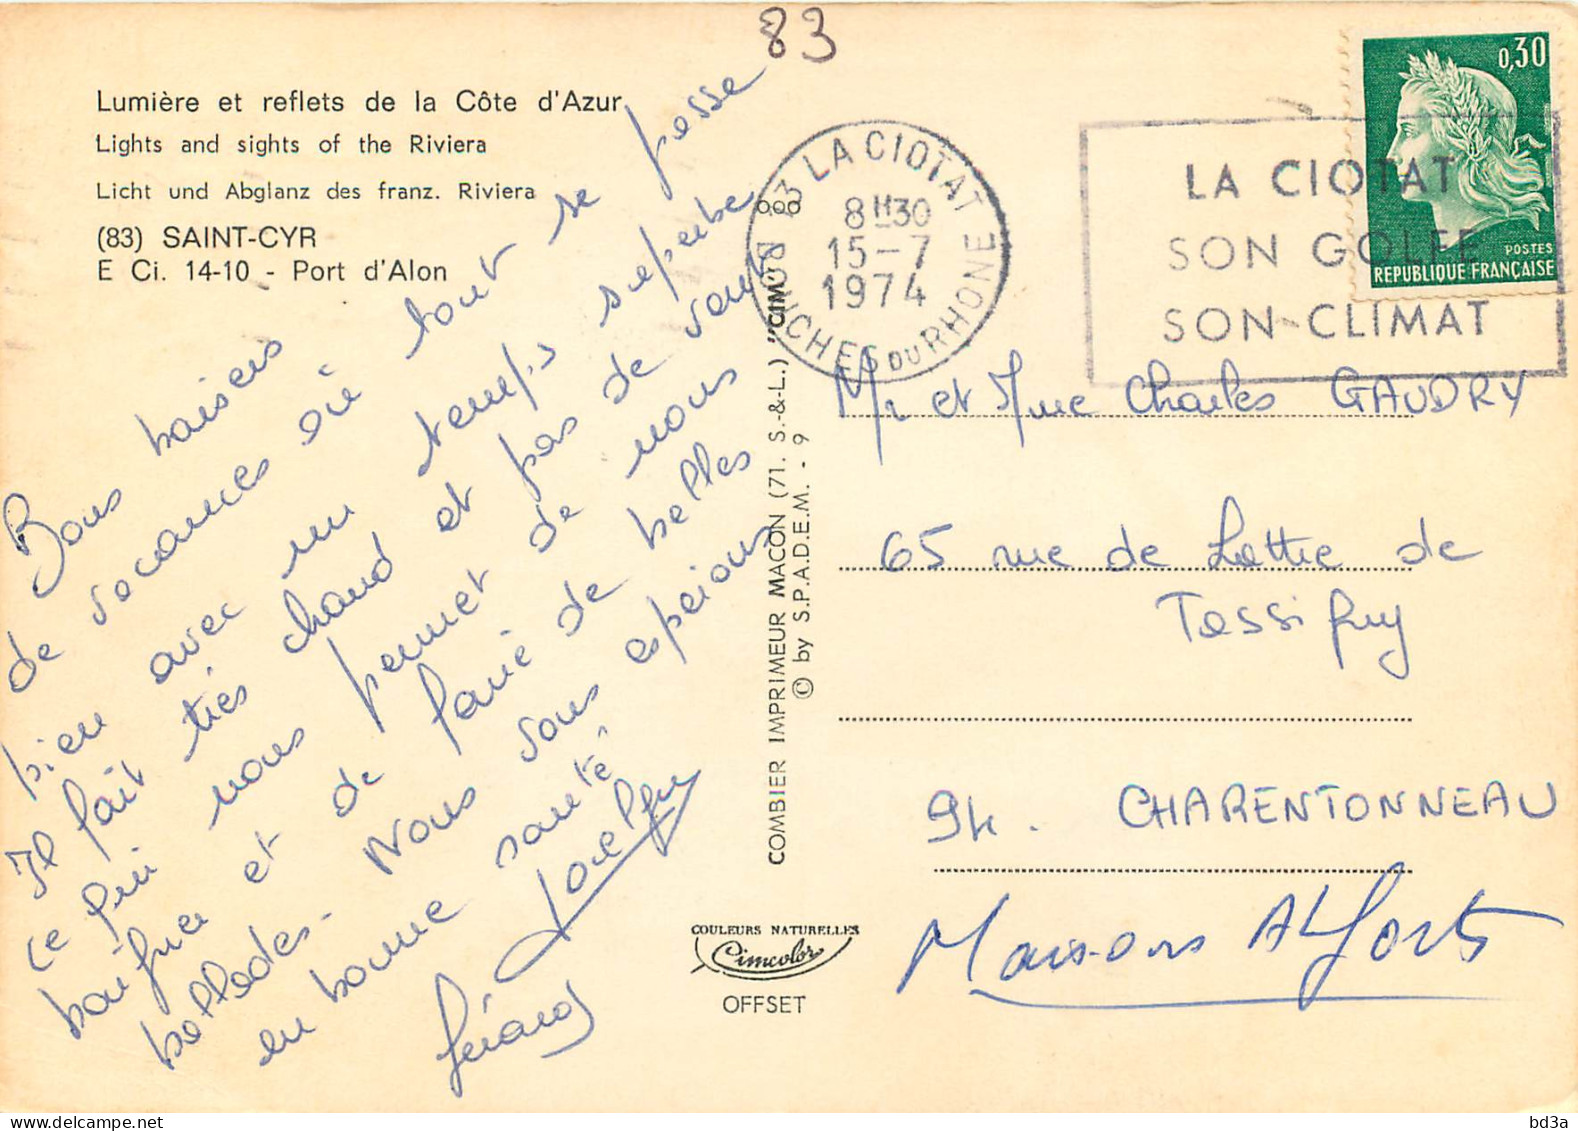 83
Lumière et reflets de la Côte d'Azur
Lights and sights of the Riviera
Licht und Abglanz des franz. Riviera
(83) SAINT-CYR
E Ci. 14-10 - Port d'Alon
Bons baisers
de vacances où tout se passe
bien avec un temps superbe
Il fait très chaud et pas de vent
ce qui nous permet de nous
baigner et de faire de belles
ballades. Nous vous espérons
en bonne santé.
Joelle
Gérard
COMBIER IMPRIMEUR MACON (71. S.-&-L.) "CIM"
© by S.P.A.D.E.M. - 9
COULEURS NATURELLES
Cimcolor
OFFSET
13 LA CIOTAT
8H30
15-7
1974
BOUCHES DU RHONE
LA CIOTAT
SON GOLFE
SON CLIMAT
0,30
POSTES
REPUBLIQUE FRANÇAISE
Mr et Mme Charles GAUDRY
65 rue de Lattre de
Tassigny
94. CHARENTONNEAU
Maisons Alfort
delcampe.net
bd3a